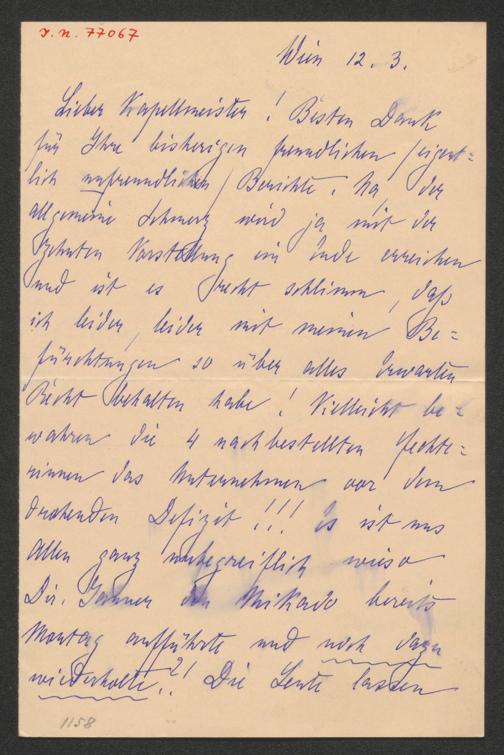 I. N. 77067
Wien 12. 3.
Lieber Kapellmeister! Besten Dank
für Ihre bisherigen freundlichen /eigent=
lich unfreundlichen/ Berichte. Na der
allgemeine Schmerz wird ja mit der
zehnten Vorstellung ein Ende erreichen
und ist es recht schlimm, daß
ich leider, leider mit meinen Be=
fürchtungen so über alles Erwarten
Recht behalten habe! Vielleicht be=
wahren die 4 nachbestellten Fechte=
rinnen das Unternehmen vor dem
drohenden Defizit!!! Es ist uns
Allen ganz unbegreiflich wieso
Dir. Jauner den Mikado bereits
Montag aufführte und noch dazu
wiederholte?! Die Leute lassen
1158